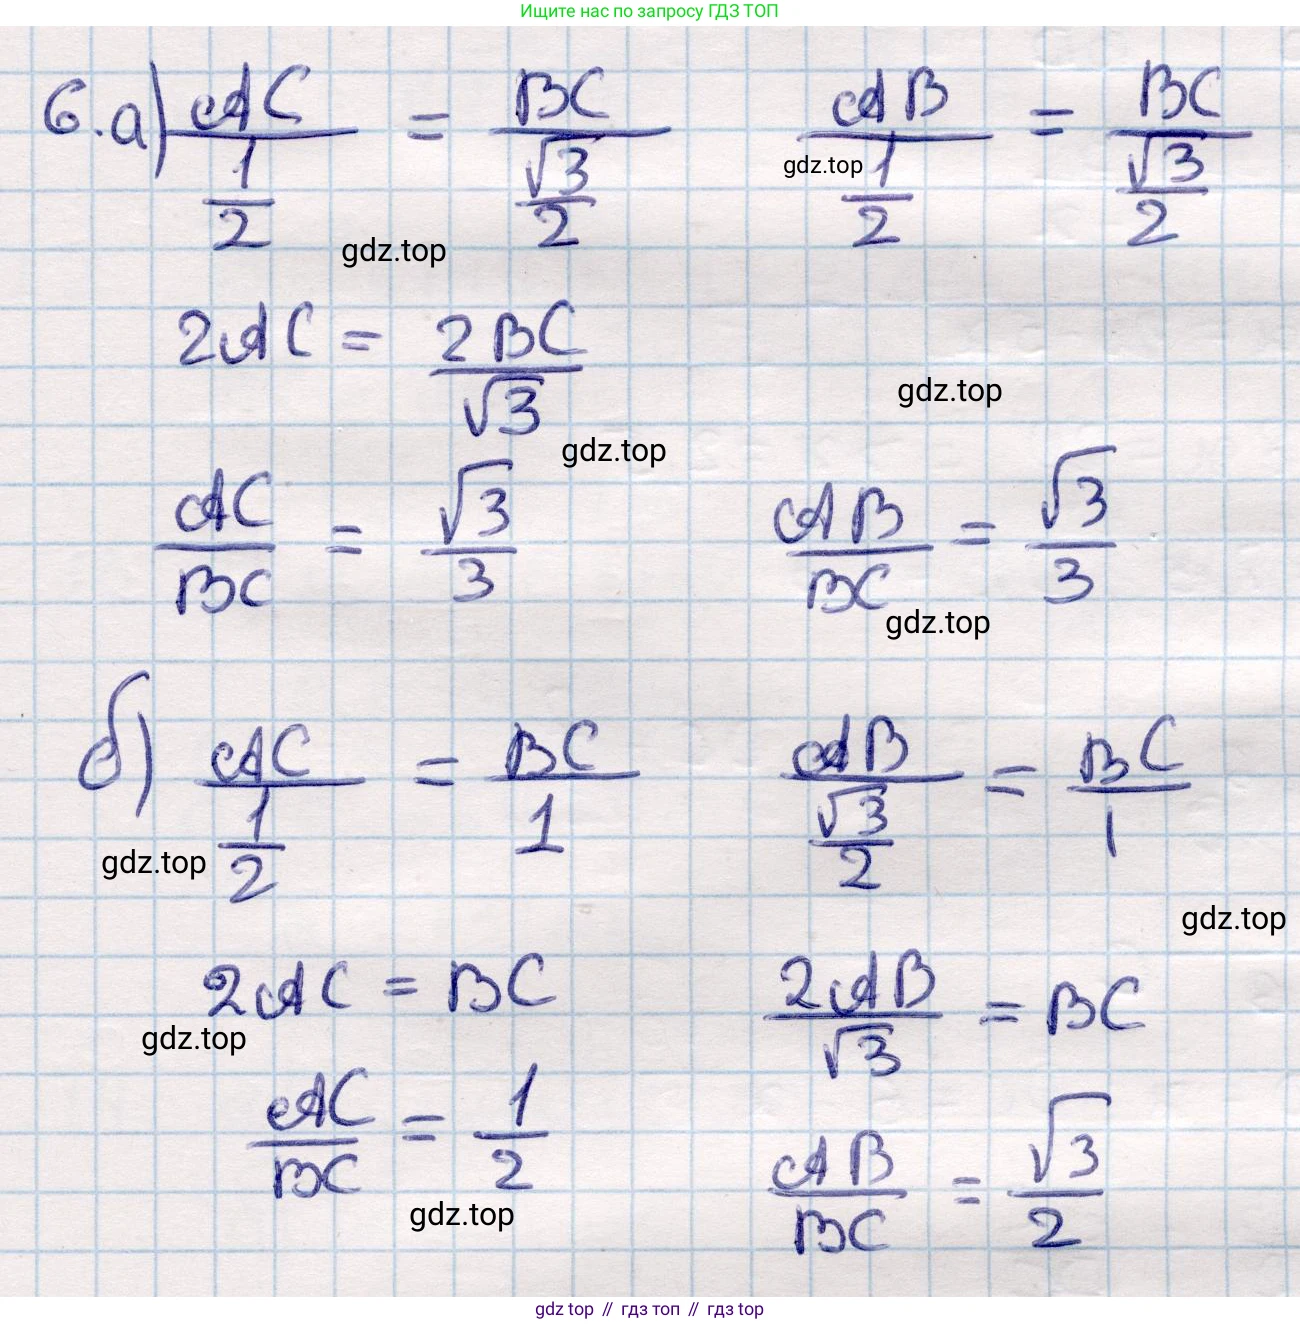 Ищите нас по запросу ГДЗ ТОП
6. а) AC / (1/2) = BC / (√3/2)    AB / (1/2) = BC / (√3/2)
gdz.top
gdz.top
2AC = 2BC / √3
gdz.top
gdz.top
AC / BC = √3 / 3    AB / BC = √3 / 3
gdz.top
б) AC / (1/2) = BC / 1    AB / (√3/2) = BC / 1
gdz.top
gdz.top
2AC = BC    2AB / √3 = BC
gdz.top
AC / BC = 1 / 2    AB / BC = √3 / 2
gdz.top
gdz top // гдз топ // гдз top